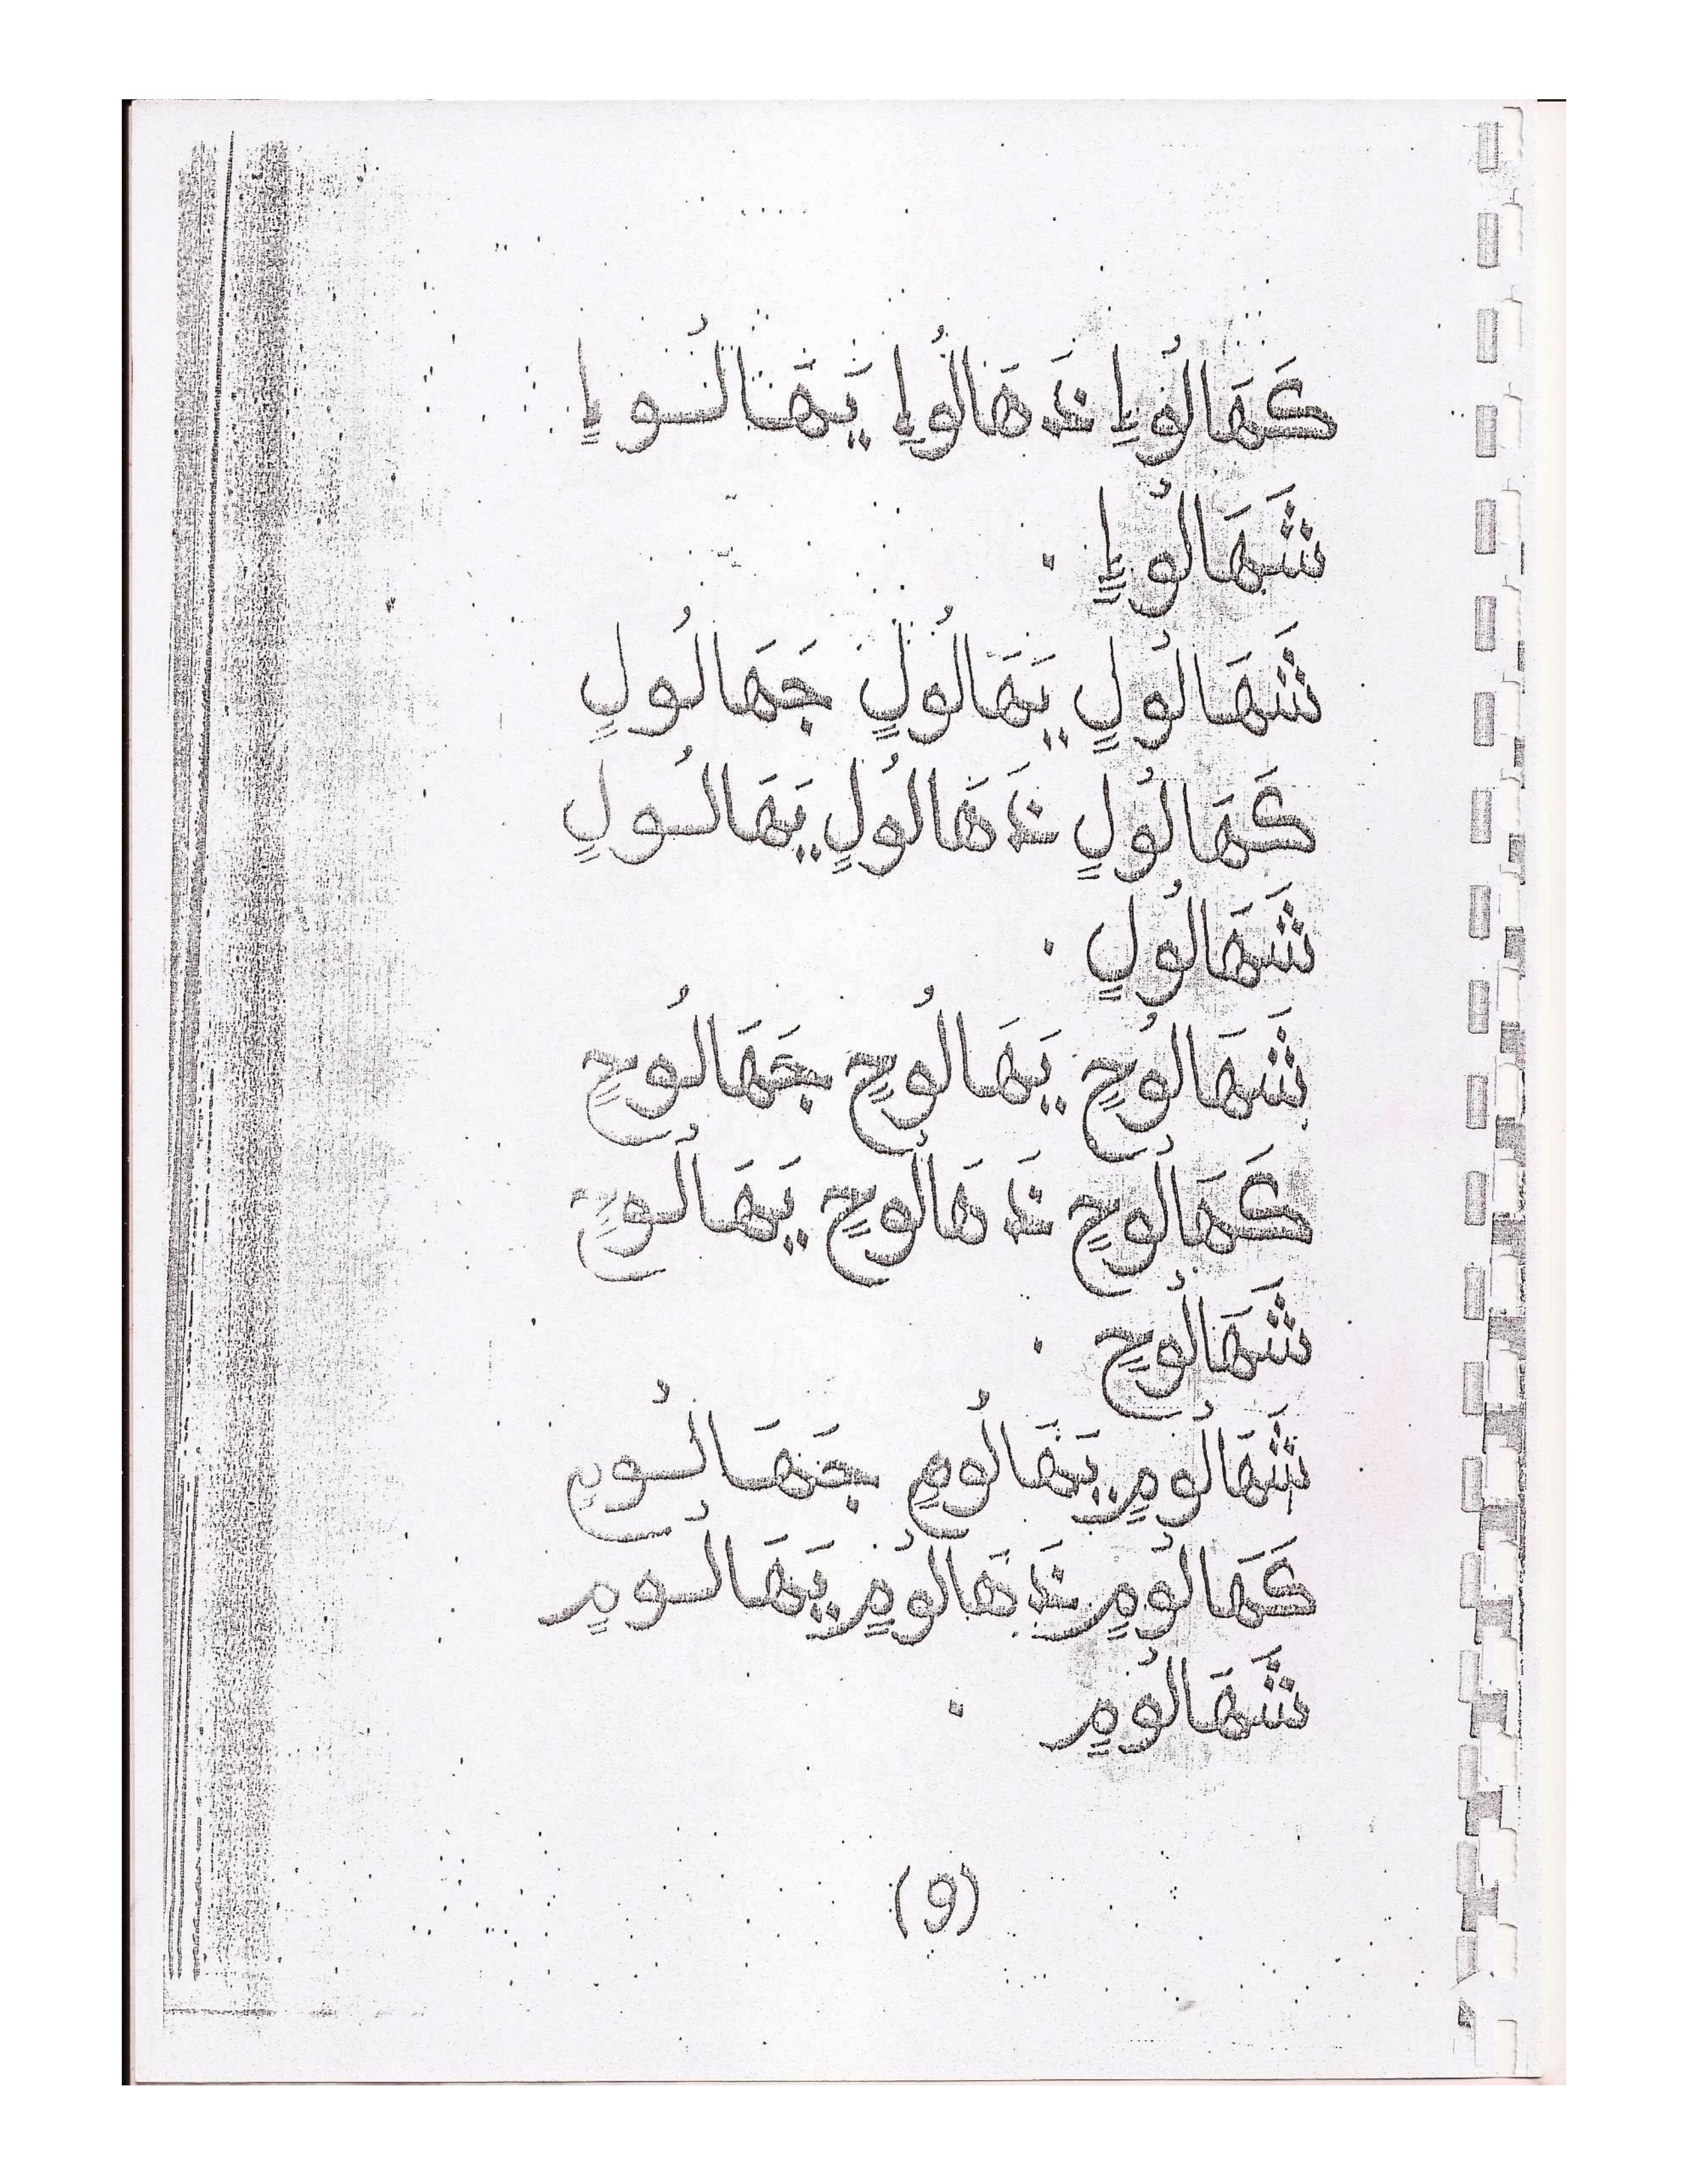 كَهَالُوإٍ نَدَهَالُوإٍ يَهَالُوإٍ
شَهَالُوإٍ .
شَهَالُولٍ يَهَالُولٍ جَهَالُولٍ
كَهَالُولٍ نَدَهَالُولٍ يَهَالُولٍ
شَهَالُولٍ .
شَهَالُوحٍ يَهَالُوحٍ جَهَالُوحٍ
كَهَالُوحٍ نَدَهَالُوحٍ يَهَالُوحٍ
شَهَالُوحٍ .
شَهَالُومٍ يَهَالُومٍ جَهَالُومٍ
كَهَالُومٍ نَدَهَالُومٍ يَهَالُومٍ
شَهَالُومٍ .
(9)